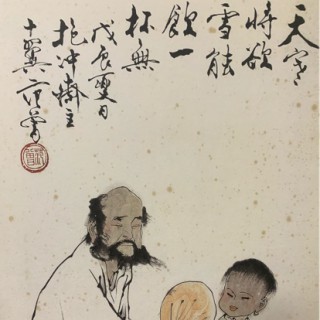 天寒
将欲
雪能
飲一
杯無
戊辰夏日
抱冲齋主
十翼范曾